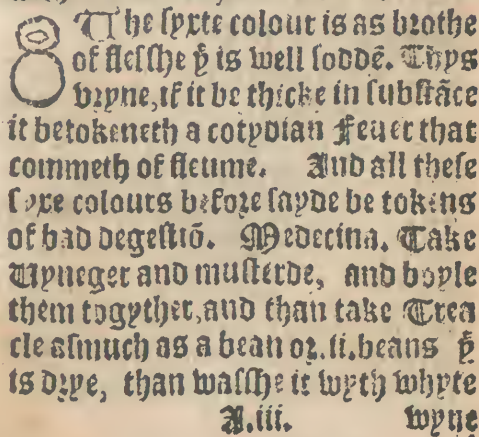 The ſyxte colour is as brothe
of fleſſhe yͭ is well ſoddē. Thys
vryne, if it be thicke in ſubſtāce
it betokeneth a cotydian feuer that
commeth of fleume. And all theſe
ſyxe colours before ſayde be tokens
of bad degeſtiō. Medecina. Take
Vyneger and muſterde, and boyle
them togyther, and than take Trea
cle aſmuch as a bean or .ii. beans yͭ
is drye, than waſſhe it wyth whyte
A.iii. wyne